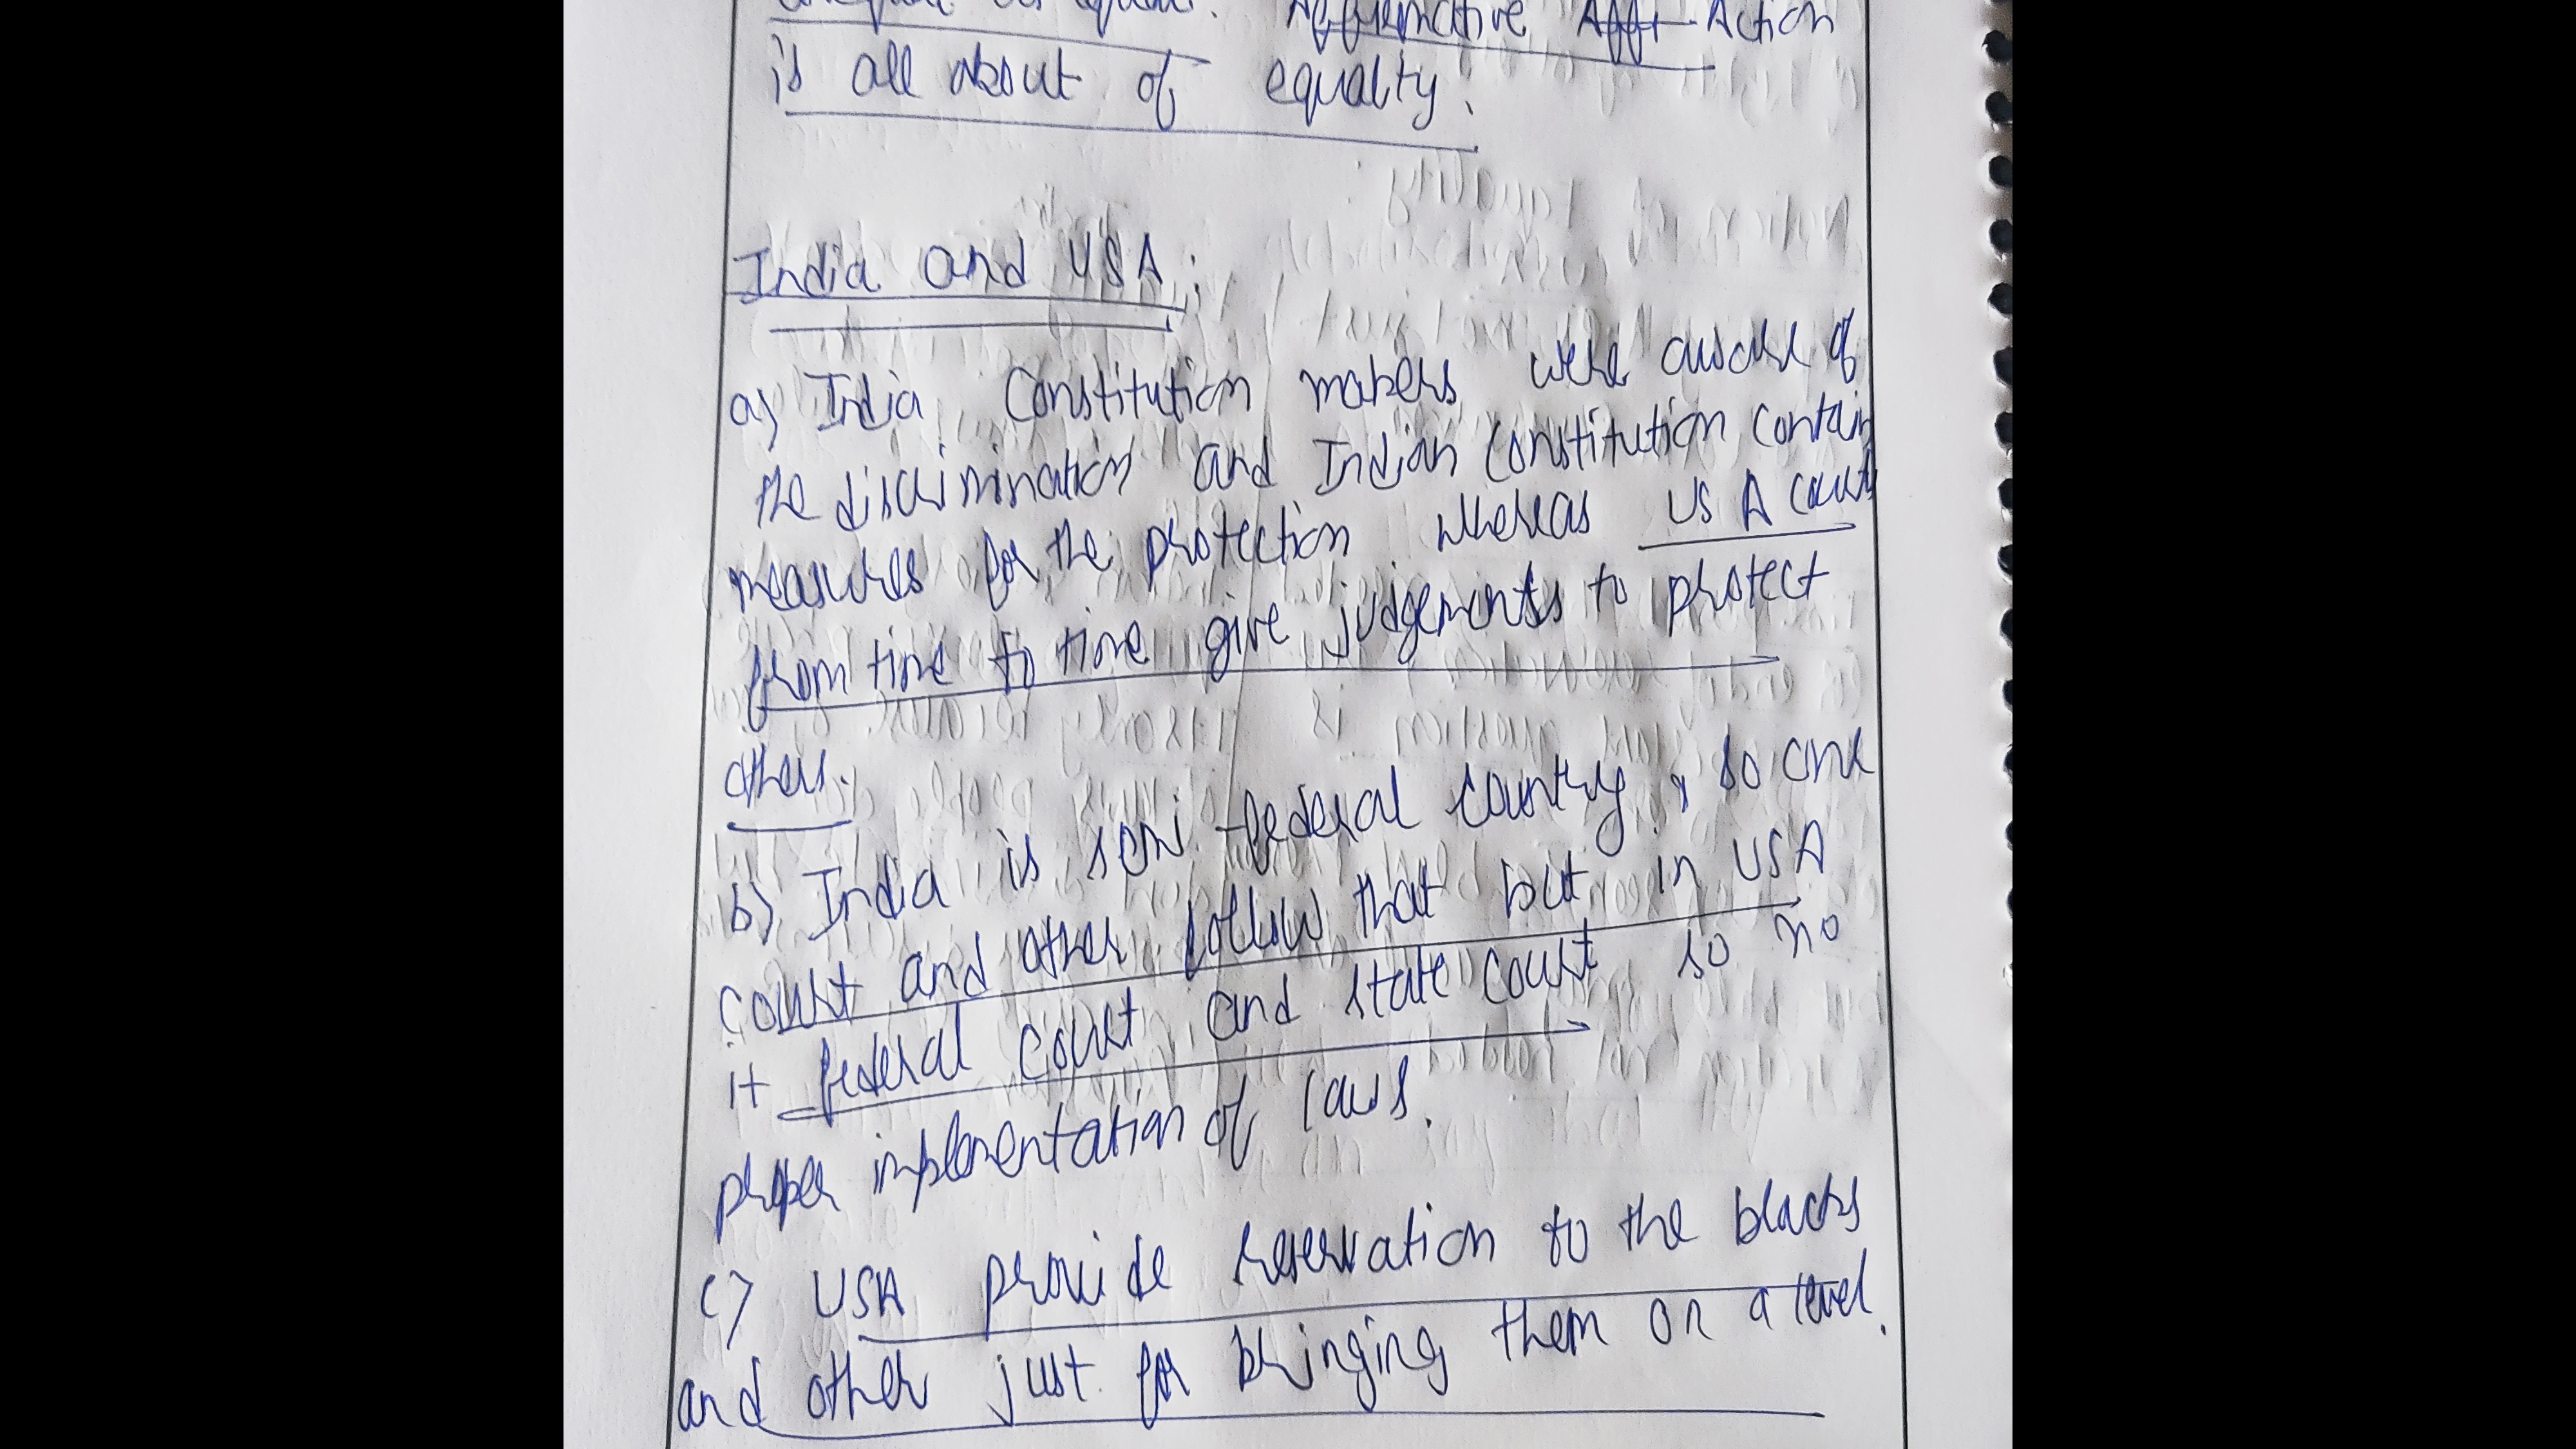 as equal. Affirmative Affr Action
is all about of equalty.
India and USA:
a) India Constitution makers were aware of
the discrimination and Indian Constitution contain
measures for the protection whereas USA court
from time to time give judgements to protect
others.
b) India is semi-federal country, so one
court and other follow that but in USA
it federal court and state court so no
proper implementation of laws.
c) USA provide reservation to the blacks
and other just for bringing them on a level.